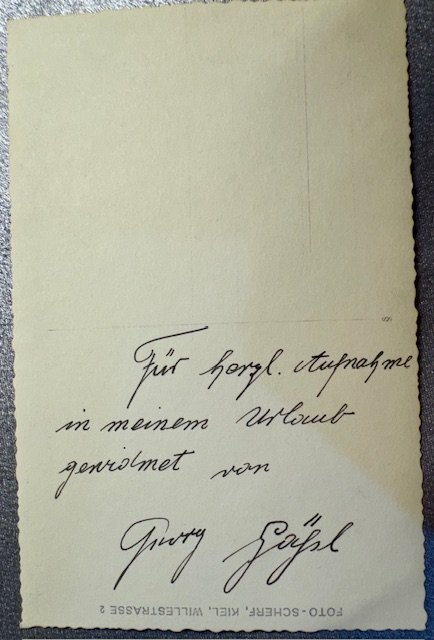 Für herzl. Aufnahme
in meinem Urlaub
gewidmet von
Georg
FOTO-SCHERF, KIEL, WILLESTRASSE 2